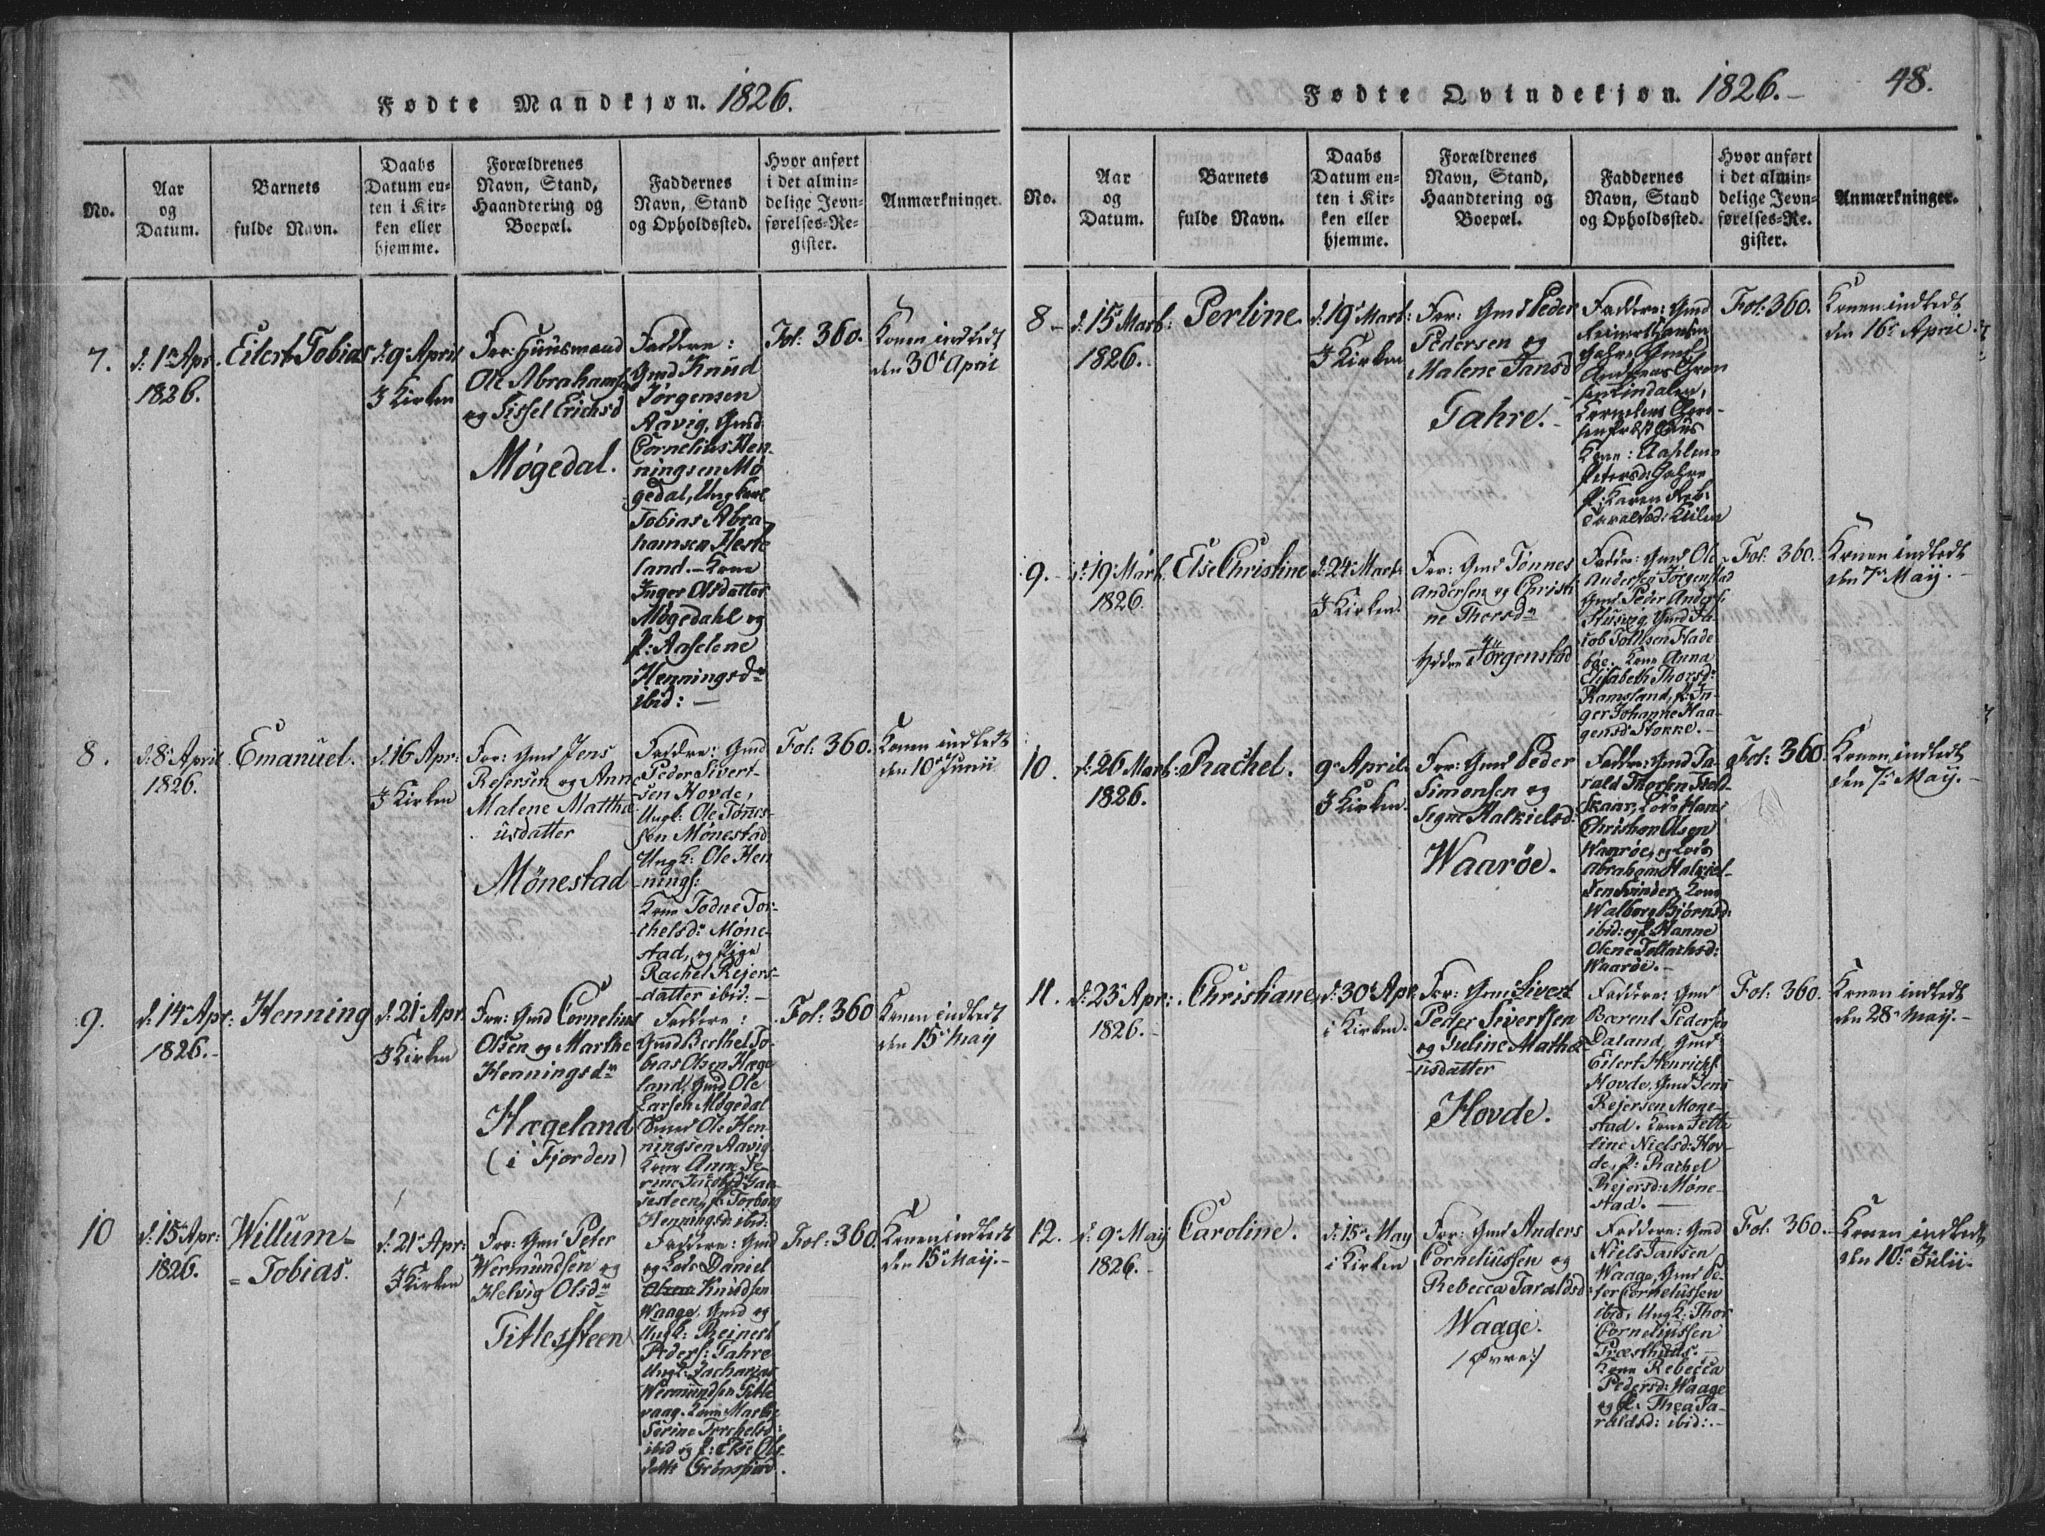 Fødte Mandkjøn. 1826.
No.
Aar
og
Datum.
Barnets
fulde Navn.
Daabs
Datum en-
ten i Kir-
ken eller
hjemme.
Forældrenes
Navn, Stand,
Haandtering og
Boepæl.
Faddernes
Navn, Stand
og Opholdssted.
Hvor anført
i det almin-
delige Jevn-
førelses-Re-
gister.
Anmærkninger.
7.
d: 1r Apr.
1826.
Eilert Tobias
d: 9r April
I Kirken
For: Huusmand
Ole Abrahams:
og Sissel Erichsd
Møgedal.
Faddere:
Gmd Knud
Jørgensen
Aavig, Gmd
Cornelius Hen-
ningsen Mø
gedal, Ung Karl
Tobias Abra-
hamsen Heste
land. – Kone
Inger Olsdatter
Møgedahl og
P: Aaselene
Henningsdr
ibid: –
Fol: 360.
Konen indledt
den 30t April
8.
d: 8r April
1826.
Emanuel.
d: 16 Apr:
I Kirken
For: Gmd Jens
Rejersen og Ann
Malene Matthæ
usdatter
Mønestad
Faddre: Gmd
Peder Sivert-
sen Hovde,
Ungk: Ole Tønnes-
sen Mønestad
Ungk: Ole Hen
nings:
Kone Todne Tor-
chelsdr Møne-
stad, og Pige
Rachel Rejers-
datter ibid: –
Fol: 360.
Konen indledt
den 10r Junii
9.
d: 14r Apr:
1826.–
Henning
d: 21r Apr.
I Kirken
For: Gmd Cornelius
Olsen og Marthe
Henningsdr
Hægeland
(i Fjorden)
Faddere:
Gmd Berthel To-
bias Olsen Hæge
land, Gmd Ole
Larsen Møgedal
Gmd Ole Hen-
ningsen Aavig
Kone Anne Se-
rine
P: Torborg
Henningsd: ibid:
Fol: 360
Konen indledt
den 15r May
10
d: 15r Apr:
1826.
Willum-
- Tobias.
d: 21r Apr:
I Kirken
For: Gmd Peter
Wermundsen og
Helvig Olsdr
Tittessteen
Faddere: Gmd
og Lods Daniel
Knudsen
Waage, Gmd og
Ungk: Reinert
Peders: Jahre
Ungk: Zacharias
Wermundsen Titte
vaag. Kone Marthe
Serine Torchelsd:
ibid og P: Else Ols-
datter
Fol: 360.
Konen indledt
den 15r May. –
Fødte Qvindekjøn. 1826. –
48.
No.
Aar
og
Datum.
Barnets
fulde Navn.
Daabs
Datum en-
ten i Kir-
ken eller
hjemme.
Forældrenes
Navn, Stand,
Haandtering og
Boepæl.
Faddernes
Navn, Stand
og Opholdssted.
Hvor anført
i det almin-
delige Jevn-
førelses-Re-
gister.
Anmærkninger.
8 –
d: 15r Marts:
1826.
Perline.
d: 19r Marts:
I Kirken
For: Gmd Peder
Pedersen og
Malene Jansd
Jahre. –
Faddere: Gmd
Jahre, Gmd
Andreas
Kone: Aaslene
Petersd: Jahre
P: Karen
Taraldsd:
Fol: 360.
Konen indledt
den 16r April
9. –
d: 19r Marts.
1826.
Else Christine
d: 24r Marts
I Kirken.
For: Gmd Tønnes
Andersen og Christi
ne Thorsdr
Jørgenstad
Faddre: Gmd Ole
Andersen Jørgenstad
Gmd Peder Anders:
Gmd Ja
cob Tollifsen Flade
bøe. Kone Anna
Elisabeth Thorsd:
Ramsland, P: In-
ger Johanne Haa-
gensd Stønne. –
Fol: 360.
Konen indledt
den 7r May. –
10.
d: 26 Marts:
1826.
Rachel.
9r April.
I Kirken.
For: Gmd Peder
Simonsen og
Signe Salkielsd:
Waarøe.
Faddre: Gmd Ta-
rald Thorsen
skaar, Lods Hans
Christian Olsen
Waarøe, og Lods
Abraham Halkiel-
sen Svindør, Kone
Walborg Bjørnsd:
ibid: og P: Hanne
Olene Tollachsd:
Waarøe. –
Fol: 360.
Konen indledt
den 7r May. –
11.
d: 23r Apr:
1826. –
Christiane
d: 30r Apr.
i Kirken.
For: Gmd Sivert
Peder Sivertsen
og Juline Mathæ-
usdatter
Hovde.
Faddere: Gmd
Berent Pedersen
Daland, Gmd
Eilert Henrichs:
Hovde, Gmd Jens
Rejersen Møne-
stad. Kone Jette
line Nielsd: Hov-
de, P: Rachel
Rejersd: Møne-
stad. –
Fol: 360.
Konen indledt
den 28r May. –
12.
d: 9r May
1826. –
Caroline.
d: 15r May
i Kirken
For: Gmd Anders
Corneliussen og
Rebecca Taraldsd:
Waage.
/: Øvre :/
Faddere: Gmd
Niels Jansen
Waage, Gmd Pe-
ter Corneliussen
ibid, Ungk: Thor
Corneliussen
Præsthuus. –
Kone Rebecca
Pedersd: Waage
og P: Thea Ta-
raldsd: ibid: –
Fol: 360.
Konen indledt
den 10r Julii.